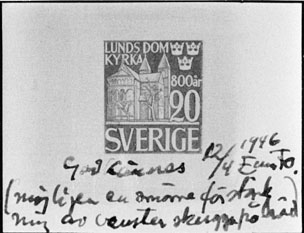 LUNDS DOM
KYRKA
800 år
20
SVERIGE
Godkännes 12/4 1946
(möjligen en större förstärk
ning av venster skugga på